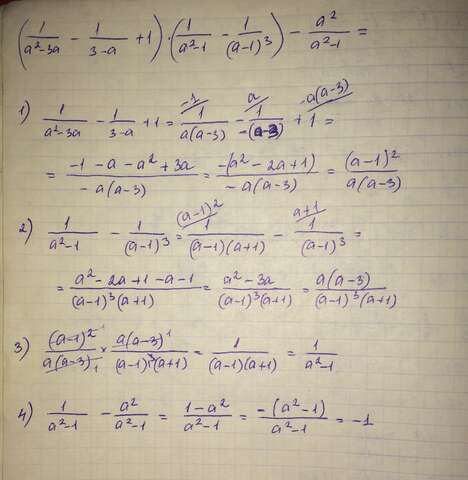 (1/(a²-3a) - 1/(3-a) + 1) · (1/(a²-1) - 1/(a-1)³) - a²/(a²-1) =
1) 1/(a²-3a) - 1/(3-a) + 1 = -1/ 1/(a(a-3)) - a/ 1/(-(a-3)) + -a(a-3)/ 1 =
= (-1-a-a²+3a)/(-a(a-3)) = (-(a²-2a+1))/(-a(a-3)) = (a-1)²/(a(a-3))
2) 1/(a²-1) - 1/(a-1)³ = (a-1)²/ 1/((a-1)(a+1)) - a+1/ 1/(a-1)³ =
= (a²-2a+1-a-1)/((a-1)³(a+1)) = (a²-3a)/((a-1)³(a+1)) = a(a-3)/((a-1)³(a+1))
3) (a-1)²/(a(a-3)) × a(a-3)/((a-1)³(a+1)) = 1/((a-1)(a+1)) = 1/(a²-1)
4) 1/(a²-1) - a²/(a²-1) = (1-a²)/(a²-1) = -(a²-1)/(a²-1) = -1